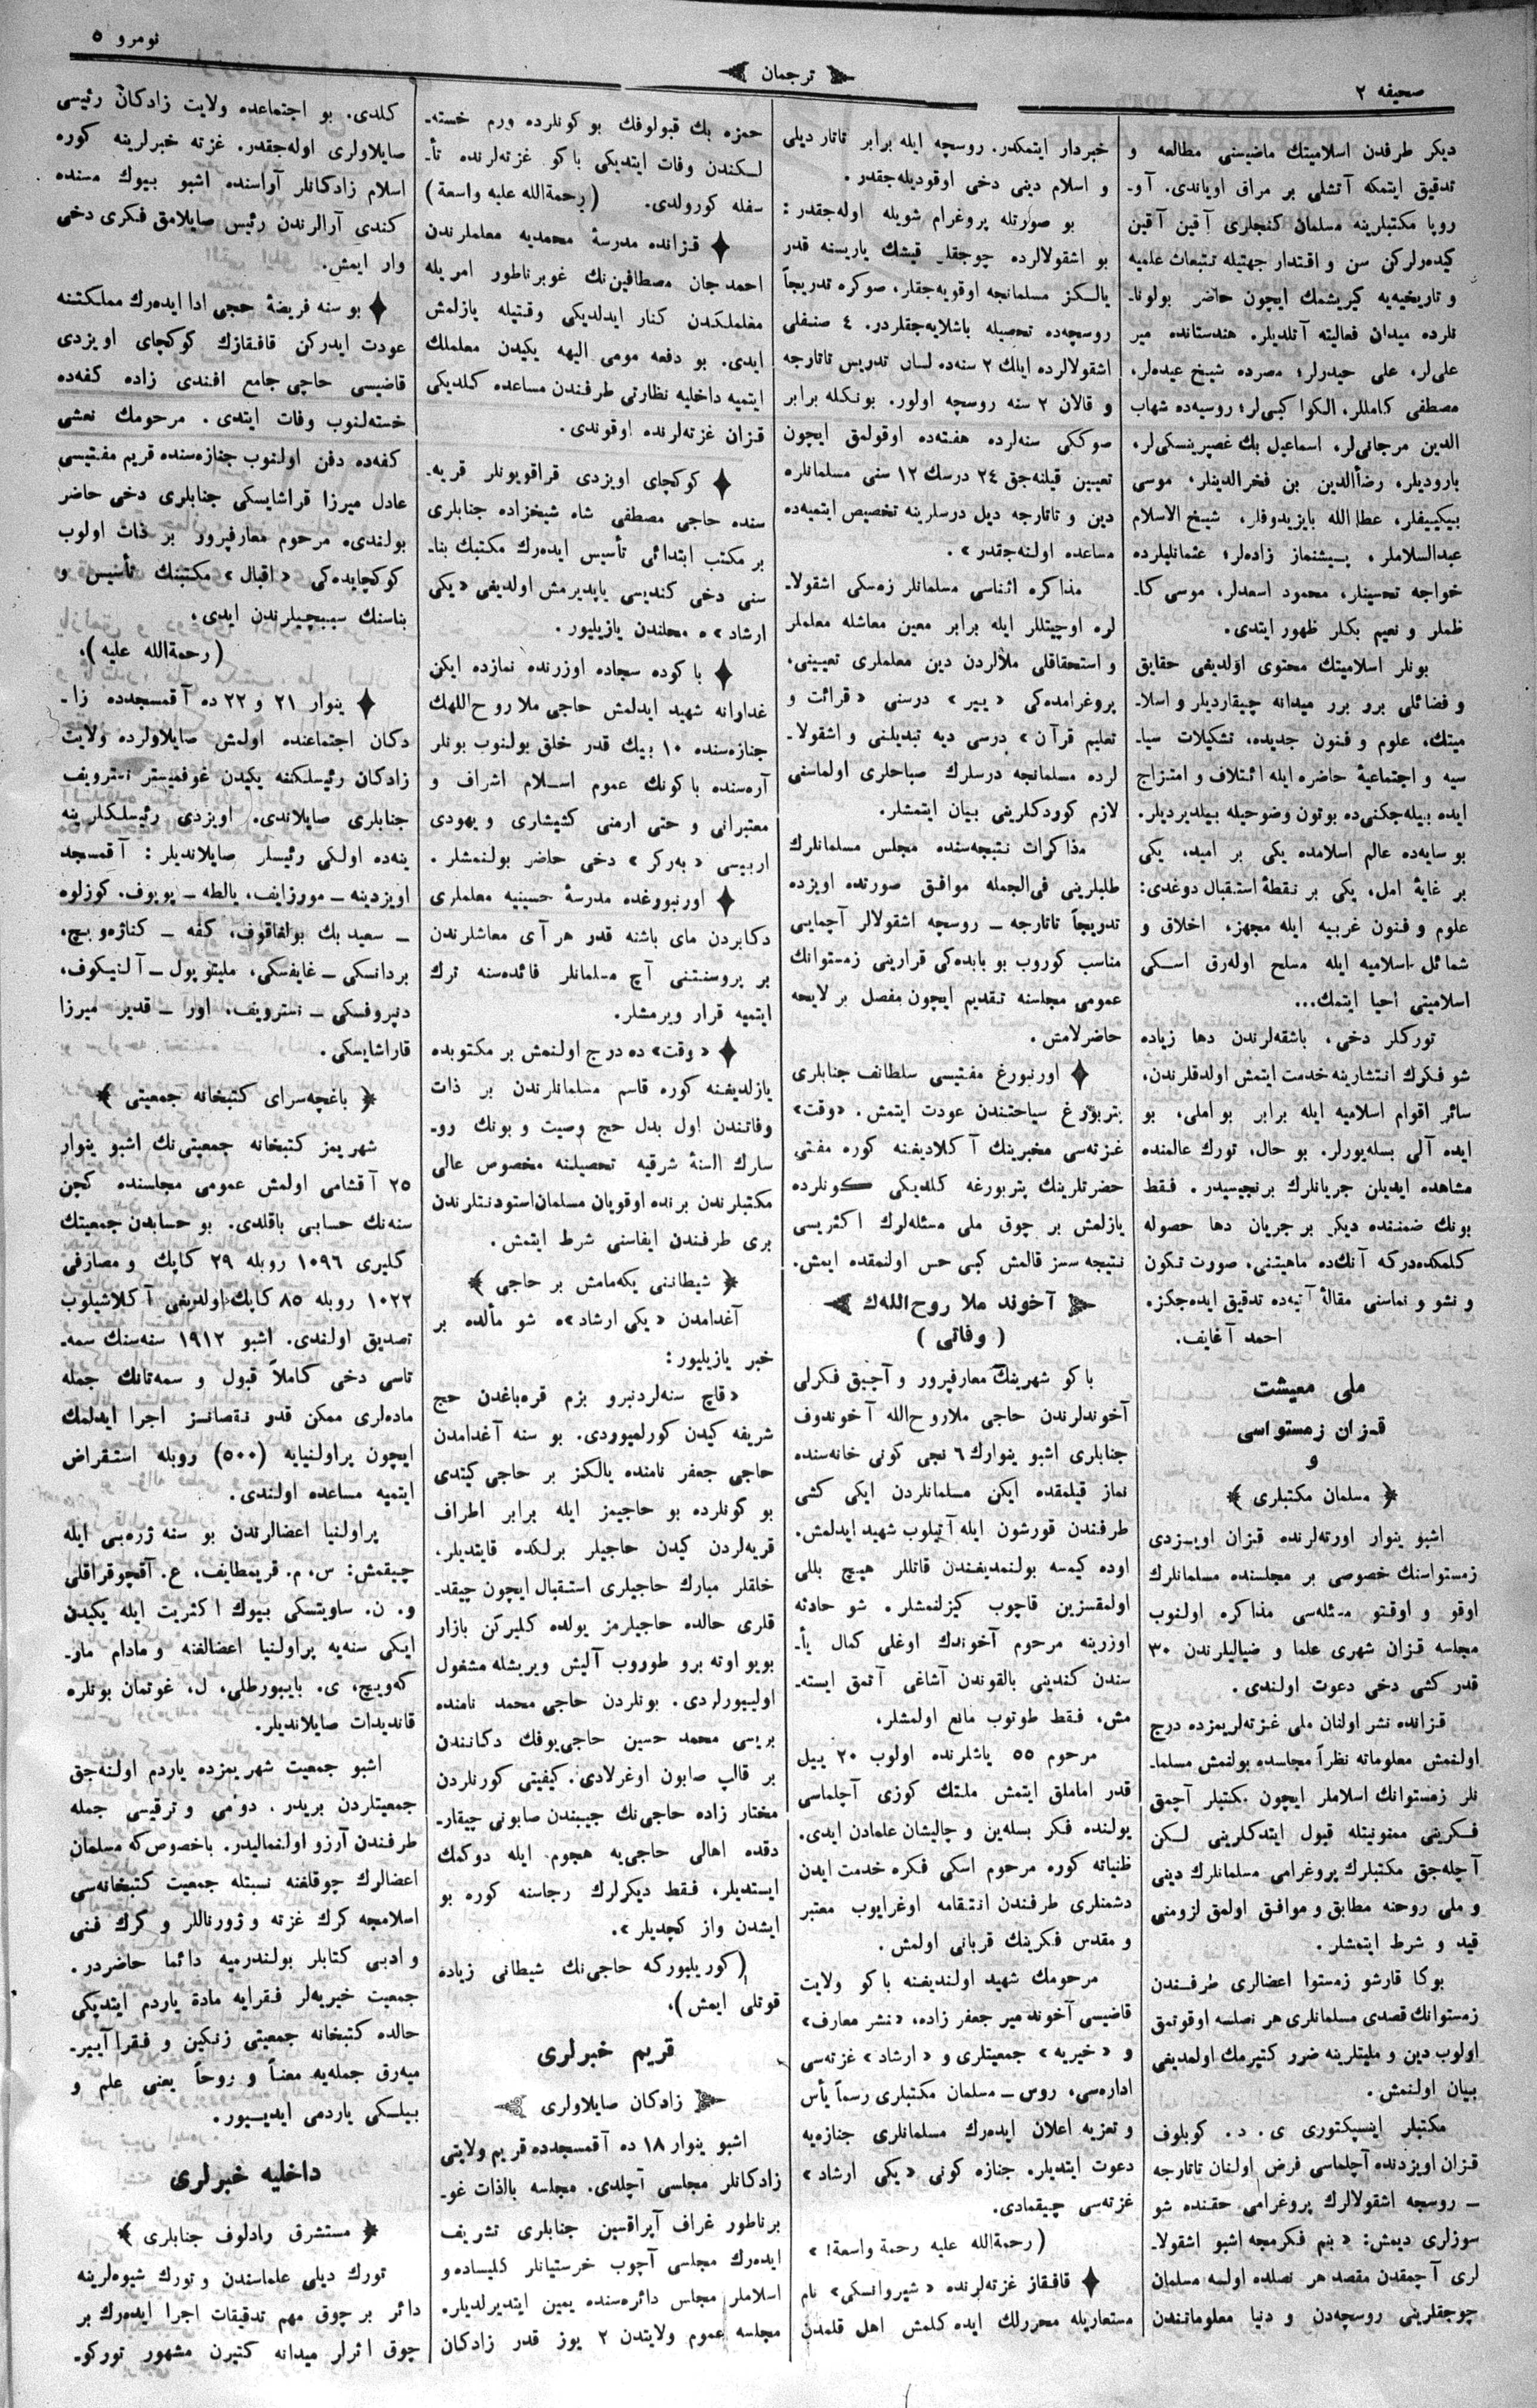 صحیفه ٢
ترجمان
نومرو ٥
دیكر طرفدن اسلامیتك ماضیسنی مطالعه و
تدقیق ایتمكه آتشلی بر مراق اویاندی. آو-
روپا مكتبلرینه مسلمان كنجلری آقین آقین
كیده‌رلركن سن و اقتدار جهتیله تتبعات علمیه
و تاریخیه‌یه كیریشمك ایچون حاضر بولونا-
نلرده میدان فعالیته آتلدیلر. هندستانده میر
علی‌لر، علی حیدرلر؛ مصرده شیخ عبده‌لر،
مصطفی كامللر، الكوا كبی‌لر؛ روسیه‌ده شهاب
الدین مرجانی‌لر، اسماعیل بك غصپرینسكی‌لر،
بارودیلر، رضأالدین بن فخرالدینلر، موسی
بیكییفلر، عطاالله بایزیدوفلر، شیخ الاسلام
عبدالسلاملر، پیشنماز زاده‌لر؛ عثمانلیلرده
خواجه تحسینلر، محمود اسعدلر، موسی كا-
ظملر و نعیم بكلر ظهور ایتدی.
بونلر اسلامیتك محتوی اولدیغی حقایق
و فضائلی برو برر میدانه چیقاردیلر و اسلا-
میتك، علوم و فنون جدیده، تشكیلات سیا-
سیه و اجتماعیهٔ حاضره ایله ائتلاف و امتزاج
ایده بیله‌جكنی‌ده بوتون وضوحیله بیلدیردیلر.
بو سایه‌ده عالم اسلامده یكی بر امید، یكی
بر غایهٔ امل، یكی بر نقطهٔ استقبال دوغدی:
علوم و فنون غربیه ایله مجهز، اخلاق و
شمائل اسلامیه ایله مسلح اوله‌رق اسكی
اسلامیتی احیا ایتمك...
توركلر دخی، باشقه‌لرندن دها زیاده
شو فكرك انتشارینه خدمت ایتمش اولدقلرندن،
سائر اقوام اسلامیه ایله برابر بو املی، بو
ایده آلی بسله‌یورلر. بو حال، تورك عالمنده
مشاهده ایدیلن جریانلرك برنجیسیدر. فقط
بونك ضمننده دیكر بر جریان دها حصوله
كلمكده‌دركه آنك‌ده ماهیتنی، صورت تكون
و نشو و نماسنی مقالهٔ آتیه‌ده تدقیق ایده‌جكز.
احمد آغایف.
ملی معیشت
قزان زمستواسی
و
مسلمان مكتبلری
اشبو ینوار اورته‌لرنده قزان اویزدی
زمستواسنك خصوصی بر مجلسنده مسلمانلرك
اوقو و اوقتو مسئله‌سی مذاكره اولنوب
مجلسه قزان شهری علما و ضیالیلرندن ٣٠
قدر كشی دخی دعوت اولندی.
قزانده نشر اولنان ملی غزته‌لریمزده درج
اولنمش معلوماته نظراً مجلسده بولنمش مسلما-
نلر زمستوانك اسلاملر ایچون مكتبلر آچمق
فكرینی ممنونیتله قبول ایتدكلرینی لكن
آچله‌جق مكتبلرك پروغرامی مسلمانلرك دینی
و ملی روحنه مطابق و موافق اولمق لزومنی
قید و شرط ایتمشلر.
بوكا قارشو زمستوا اعضالری طرفندن
زمستوانك قصدی مسلمانلری هر نصلسه اوقوتمق
اولوب دین و ملیتلرینه ضرر كتیرمك اولمدیغی
بیان اولنمش.
مكتبلر اینسپكتوری ی. د. كوبلوف
قزان اویزدنده آچلماسی فرض اولنان تاتارجه
ـ روسچه اشقولالرك پروغرامی حقنده شو
سوزلری دیمش: «بنم فكرمجه اشبو اشقولا-
لری آچمقدن مقصد هر نصلده اولسه مسلمان
چوجقلرینی روسچه‌دن و دنیا معلوماتندن
خبردار ایتمكدر. روسچه ایله برابر تاتار دیلی
و اسلام دینی دخی اوقودیله‌جقدر.
بو صورتله پروغرام شویله اوله‌جقدر:
بو اشقولالرده چوجقلر قیشك یاریسنه قدر
یالكز مسلمانجه اوقویه‌جقلر، صوكره تدریجاً
روسچه‌ده تحصیله باشلایه‌جقلردر. ٤ صنفلی
اشقولالرده ایلك ٢ سنه‌ده لسان تدریس تاتارجه
و قالان ٢ سنه روسچه اولور. بونكله برابر
صوككی سنه‌لرده هفته‌ده اوقولمق ایچون
تعیین قیلنه‌جق ٢٤ درسك ١٢ سنی مسلمانلره
دین و تاتارجه دیل درسلرینه تخصیص ایتمیه‌ده
مساعده اولنه‌جقدر».
مذاكره اثناسی مسلمانلر زمسكی اشقولا-
لره اوچیتللر ایله برابر معین معاشله معلملر
و استحقاقلی ملالردن دین معلملری تعیینی،
پروغرامده‌كی «یبر» درسنی «قرائت و
تعلیم قرآن» درسی دیه تبدیلنی و اشقولا-
لرده مسلمانجه درسلرك صباحلری اولماسنی
لازم كوردكلرینی بیان ایتمشلر.
مذاكرات نتیجه‌سنده مجلس مسلمانلرك
طلبلرینی فی‌الجمله موافق صورتده اویزده
تدریجاً تاتارجه ـ روسچه اشقولالر آچمایی
مناسب كوروب بو بابده‌كی قرارینی زمستوانك
عمومی مجلسنه تقدیم ایچون مفصل بر لایحه
حاضرلامش.
اورنبورغ مفتیسی سلطانف جنابلری
پتربورغ سیاحتندن عودت ایتمش. «وقت»
غزته‌سی مخبرینك آكلادیغنه كوره مفتی
حضرتلرینك پتربورغه كلدیكی كونلرده
یازلمش بر چوق ملی مسئله‌لرك اكثریسی
نتیجه سسز قالمش كبی حس اولنمقده ایمش.
آخوند ملا روح‌الله‌ك
(وفاتی)
باكو شهرینك معارفپرور و آچیق فكرلی
آخوندلرندن حاجی ملاروح‌الله آخوندوف
جنابلری اشبو ینوارك ٦ نجی كونی خانه‌سنده
نماز قیلمقده ایكن مسلمانلردن ایكی كشی
طرفندن قورشون ایله آتیلوب شهید ایدلمش.
اوده كیمسه بولنمدیغندن قاتللر هیچ بللی
اولمقسزین قاچوب كیزلنمشلر. شو حادثه
اوزرینه مرحوم آخوندك اوغلی كمال یأ-
سندن كندینی بالقوندن آشاغی آتمق ایسته-
مش، فقط طوتوب مانع اولمشلر.
مرحوم ٥٥ یاشلرنده اولوب ٢٠ ییل
قدر اماملق ایتمش ملتك كوزی آچلماسی
یولنده فكر بسله‌ین و چالیشان علمادن ایدی.
ظنیاته كوره مرحوم اسكی فكره خدمت ایدن
دشمنلری طرفندن انتقامه اوغرایوب معتبر
و مقدس فكرینك قربانی اولمش.
مرحومك شهید اولندیغنه باكو ولایت
قاضیسی آخوند میر جعفر زاده، «نشر معارف»
و «خیریه» جمعیتلری و «ارشاد» غزته‌سی
اداره‌سی، روس ـ مسلمان مكتبلری رسماً یأس
و تعزیه اعلان ایده‌رك مسلمانلری جنازه‌یه
دعوت ایتدیلر. جنازه كونی «یكی ارشاد»
غزته‌سی چیقمادی.
(رحمةالله علیه رحمة واسعة!»
قافقاز غزته‌لرنده «شیروانسكی» نام
مستعاریله محررلك ایده كلمش اهل قلمدن
حمزه بك قبولوفك بو كونلرده ورم خسته-
لكندن وفات ایتدیكی باكو غزته‌لرنده تأ-
سفله كورولدی. (رحمةالله علیه واسعة)
قزانده مدرسهٔ محمدیه معلملرندن
احمد جان مصطافین‌نك غوبرناطور امریله
معلملكدن كنار ایدلدیكی وقتیله یازلمش
ایدی. بو دفعه مومی الیهه یكیدن معلملك
ایتمیه داخلیه نظارتی طرفندن مساعده كلدیكی
قزان غزته‌لرنده اوقوندی.
كوكچای اویزدی قراقویونلر قریه-
سنده حاجی مصطفی شاه شیخزاده جنابلری
بر مكتب ابتدائی تأسیس ایده‌رك مكتبك بنا-
سنی دخی كندیسی یاپدیرمش اولدیغی «یكی
ارشاد» ه محلندن یازیلیور.
باكوده سجاده اوزرنده نمازده ایكن
غداوانه شهید ایدلمش حاجی ملا روح‌اللهك
جنازه‌سنده ١٠ بیك قدر خلق بولنوب بونلر
آره‌سنده باكونك عموم اسلام اشراف و
معتبرانی و حتی ارمنی كشیشاری و یهودی
اربیسی «به‌ركر» دخی حاضر بولنمشلر.
اورنبووغده مدرسهٔ حسینیه معلملری
دكابردن مای باشنه قدر هر آی معاشلرندن
بر پروسنتنی آچ مسلمانلر فائده‌سنه ترك
ایتمیه قرار ویرمشلر.
«وقت» ده درج اولنمش بر مكتوبده
یازلدیغنه كوره قاسم مسلمانلرندن بر ذات
وفاتندن اول بدل حج وصیت و بونك رو-
سارك السنهٔ شرقیه تحصیلنه مخصوص عالی
مكتبلرندن برنده اوقویان مسلمان استودنتلرندن
بری طرفندن ایفاسنی شرط ایتمش.
شیطاننی یكه‌مامش بر حاجی
آغدامدن «یكی ارشاد»ه شو مألده بر
خبر یازیلیور:
«قاچ سنه‌لردنبرو بزم قره‌باغدن حج
شریفه كیدن كورلمیووردی. بو سنه آغدامدن
حاجی جعفر نامنده یالكز بر حاجی كیتدی
بو كونلرده بو حاجیمز ایله برابر اطراف
قریه‌لردن كیدن حاجیلر برلكده قایتدیلر.
خلقلر مبارك حاجیلری استقبال ایچون چیقد-
قلری حالده حاجیلرمز یولده كلیركن بازار
بویو اوته برو طوروب آلیش ویریشله مشغول
اولیبورلردی. بونلردن حاجی محمد نامنده
بریسی محمد حسین حاجی‌یوفك دكانندن
بر قالپ صابون اوغرلادی. كیفیتی كورنلردن
مختار زاده حاجی‌نك جیبندن صابونی چیقار-
دقده اهالی حاجی‌یه هجوم ایله دوكمك
ایستدیلر، فقط دیكرلرك رجاسنه كوره بو
ایشدن واز كچدیلر».
(كوریلیوركه حاجی‌نك شیطانی زیاده
قوتلی ایمش).
قریم خبرلری
زادكان صایلاولری
اشبو ینوار ١٨ ده آقمسجدده قریم ولایتی
زادكانلر مجلسی آچلدی. مجلسه بالذات غو-
برناطور غراف آپراقسین جنابلری تشریف
ایده‌رك مجلسی آچوب خرستیانلر كلیساده و
اسلاملر مجلس دائره‌سنده یمین ایتدیرلدیلر.
مجلسه عموم ولایتدن ٢ یوز قدر زادكان
كلدی. بو اجتماعده ولایت زادكان رئیسی
صایلاولری اوله‌جقدر. غزته خبرلرینه كوره
اسلام زادكانلر آراسنده اشبو بیوك مسنده
كندی آرالرندن رئیس صایلامق فكری دخی
وار ایمش.
بو سنه فریضهٔ حجی ادا ایده‌رك مملكتنه
عودت ایدركن قافقازك كوكچای اویزدی
قاضیسی حاجی جامع افندی زاده كفه‌ده
خسته‌لنوب وفات ایتدی. مرحومك نعشی
كفه‌ده دفن اولنوب جنازه‌سنده قریم مفتیسی
عادل میرزا قراشایسكی جنابلری دخی حاضر
بولندی. مرحوم معارفپرور بر ذات اولوب
كوكچایده‌كی «اقبال» مكتبنك تأسیس و
بناسنك سببچیلرندن ایدی.
(رحمةالله علیه).
ینوار ٢١ و ٢٢ ده آقمسجدده زا-
دكان اجتماعنده اولمش صایلاولرده ولایت
زادكان رئیسلكنه یكیدن غوفمیستر نسترویف
جنابلری صایلاندی. اویزدی رئیسلكلرینه
ینه‌ده اولكی رئیسلر صایلاندیلر: آقمسجد
اویزدینه ـ مورزایف، یالطه ـ پوپوف. كوزلوه
ـ سعید بك بولغاقوف، كفه ـ كناژه‌ویچ،
بردانسكی ـ غایفسكی، ملیتوپول ـ آلنیكوف،
دنپروفسكی ـ نسترویف، اورا ـ قدیر میرزا
قاراشایسكی.
باغچه‌سرای كتبخانه جمعیتی
شهریمز كتبخانه جمعیتی‌نك اشبو ینوار
٢٥ آقشامی اولمش عمومی مجلسنده كچن
سنه‌نك حسابی باقلدی. بو حسابدن جمعیتك
كلیری ١٠٩٦ روبله ٢٩ كاپك و مصارفی
١٠٢٢ روبله ٨٥ كاپك اولدیغی آكلاشیلوب
تصدیق اولندی. اشبو ١٩١٢ سنه‌سنك سمه-
تاسی دخی كاملاً قبول و سمه‌تانك جمله
ماده‌لری ممكن قدر نقصانسز اجرا ایدلمك
ایچون پراولنیایه (٥٠٠) روبله استقراض
ایتمیه مساعده اولندی.
پراولنیا اعضالرندن بو سنه ژره‌بی ایله
چیقمش: س. م. قریمطایف، ع. آقچوقراقلی
و. ن. ساویتسكی بیوك اكثریت ایله یكیدن
ایكی سنه‌یه پراولنیا اعضالغنه و مادام مار-
كه‌ویچ، ی. بایبورطلی، ل. غوتمان بونلره
قاندیدات صایلاندیلر.
اشبو جمعیت شهریمزده یاردم اولنه‌جق
جمعیتلردن بریدر. دومی و ترقیسی جمله
طرفندن آرزو اولنمالیدر. باخصوص‌كه مسلمان
اعضالرك چوقلغنه نسبتله جمعیت كتبخانه‌سی
اسلامجه كرك غزته و ژورناللر و كرك فنی
و ادبی كتابلر بولندرمیه دائما حاضردر.
جمعیت خیریه‌لر فقرایه مادة یاردم ایتدیكی
حالده كتبخانه جمعیتی زنكین و فقرا آییر-
میه‌رق جمله‌یه معناً و روحاً یعنی علم و
بیلكی یاردمی ایدییور.
داخلیه خبرلری
مستشرق رادلوف جنابلری
تورك دیلی علماسندن و تورك شیوه‌لرینه
دائر بر چوق مهم تدقیقات اجرا ایده‌رك بر
چوق اثرلر میدانه كتیرن مشهور توركو-